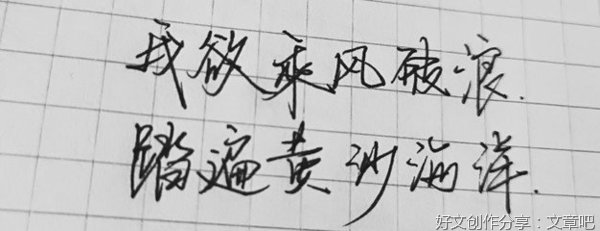 我欲乘风破浪.
踏遍黄沙海洋.
好文创作分享：文章吧